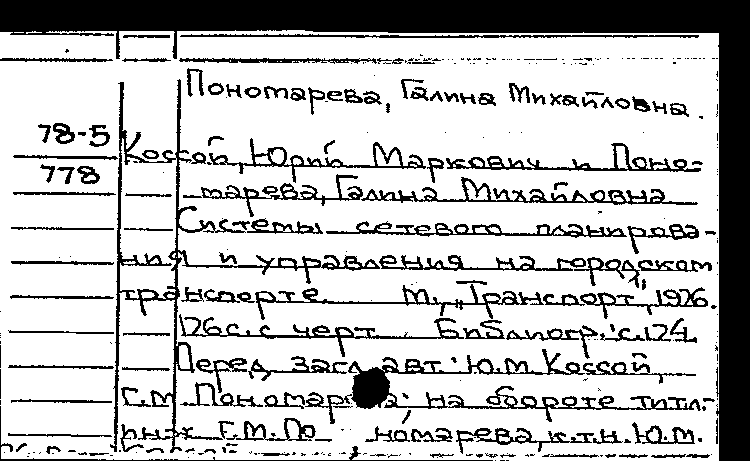 Пономарева, Галина Михайловна.
78-5
778
Коссой, Юрий Маркович и Поно-
марева, Галина Михайловна
Системы сетевого планирова-
ния и управления на городском
транспорте. М., "Транспорт", 1976.
126с. с черт. Библиогр.: с.124.
Перед загл. авт.: Ю.М. Коссой,
Г.М. Пономарева; на обороте титл.
Г.М. Пономарева, к.т.н. Ю.М.